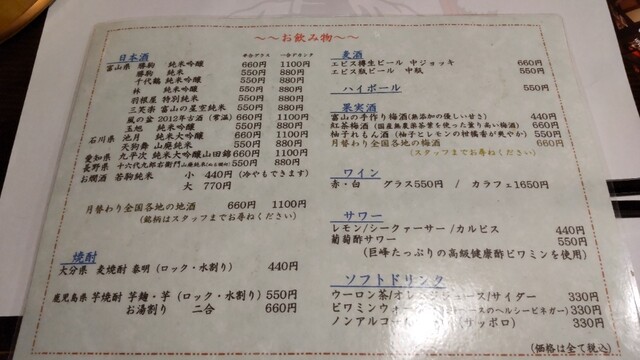 ～～お飲み物～～
日本酒 半合グラス 一合デキンタ
富山県 勝駒 純米吟醸 660円 1100円
勝駒 純米 550円 880円
千代鶴 純米吟醸 550円 880円
林 純米吟醸 550円 880円
羽根屋 特別純米 550円 880円
三笑楽 富山の星空純米 550円 880円
風の盆 2012年古酒 (常温) 660円 1100円
玉旭 純米吟醸 550円 880円
石川県 池月 純米大吟醸 660円 1100円
天狗舞 山廃純米 550円 880円
愛知県 九平次 純米大吟醸山田錦 660円 1100円
長野県 十六代九郎右衛門 純米吟醸 550円 880円
お燗酒 若駒純米 小 440円 (冷やもできます)
大 770円
月替わり全国各地の地酒 660円 1100円
(銘柄はスタッフまでお尋ねください)
焼酎
大分県 麦焼酎 泰明 (ロック・水割り) 440円
鹿児島県 芋焼酎 芋麹・芋 (ロック・水割り) 550円
お湯割り 二合 660円
麦酒
エビス樽生ビール 中ジョッキ 660円
エビス瓶ビール 中瓶 550円
ハイボール 550円
果実酒
富山の手作り梅酒 (無添加の優しい甘さ) 440円
紅茶梅酒 (国産無農薬茶葉を使った薫り高い梅酒) 660円
柚子れもん酒 (柚子とレモンの柑橘香が爽やか) 550円
月替わり全国各地の梅酒 660円
(スタッフまでお尋ねください)
ワイン
赤・白 グラス550円 / カラフェ1650円
サワー
レモン/シークァーサー/カルピス 440円
葡萄酢サワー 550円
(巨峰たっぷりの高級健康酢ビワミンを使用)
ソフトドリンク
ウーロン茶/オレンジジュース/サイダー 330円
ビワミンウォー のヘルシービネガー) 330円
ノンアルコール (サッポロ) 330円
(価格は全て税込)